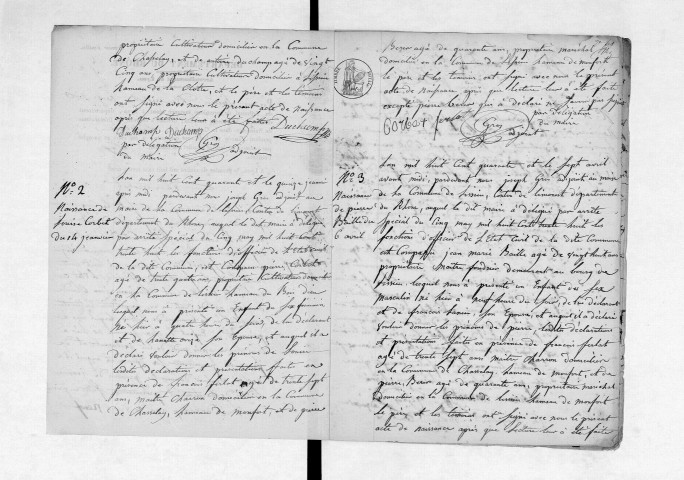 propriétaire Cultivateur domicilié en la Commune
de Chasselay, et de antoine duchamp agé de vingt
Cinq ans, propriétaire Cultivateur domicilié à Lissieu
hameau de la Clotre, et le père et les temoins
ont signé avec nous le présent acte de naissance
après que lecture leur à été faite Duchamp
Duchamp Duchamp
par délégation
du maire Gros adjoint
N.o 2
Naissance de
Louise Corbet
du 14 janvier
Lan mil huit Cent quarante et le quinze janvier
midi pardevant nous joseph Gros adjoint au
maire de la Commune de Lissieu Canton de Limonest
département du Rhône, auquel le dit maire à délégué
par arrêté spécial du Cinq may mil huit Cent
trente huit les fonctions d'officier de l'Etat Civil
de la dite Commune, est Comparu pierre Corbet
agé de trente quatre ans, propriétaire Cultivateur
en la Commune de Lissieu hameau du
lequel nous à présenté un Enfant du Sexe féminin
Né hier à quatre heures du Soir, de lui déclarant
et de son Epouse, et auquel il à
déclaré vouloir donner les prénoms de Louise
lesdite déclaration et présentation faite en
présence de françois ferlat agé de trente Sept
ans, maître Charron domicilié en la Commune
de Chasselay, hameau de monfort, et de pierre
Besson agé de quarante ans, propriétaire marichal
domicilié en la Commune de Lissieu hameau de monfort
le père et les temoins ont signé avec nous le présent
acte de Naissance après que lecture leur à été faite
excepté pierre Besson qui à déclaré ne savoir pas signer
Corbet ferlat
Gros adjoint
par délégation
du maire
N.o 3
Naissance
de pierre
Baille du
6 avril
Lan mil huit Cent quarante et le sept avril
avant midi, pardevant nous joseph Gros adjoint au maire
de la Commune de Lissieu, Canton de limonest département
du Rhône, auquel le dit maire à délégué par arrêté
spécial du Cinq may mil huit Cent trente huit les
fonctions d'officier de l'Etat Civil de la dite Commune
est Comparu jean marie Baille agé de vingt huit ans
propriétaire Maître demeurant au bourg de
Lissieu lequel nous à présenté un Enfant du Sexe
Masculin Né hier à Neuf heures du Soir, de lui déclarant
et de francoise son Epouse, et auquel il à déclaré
vouloir donner les prénoms de pierre, lesdites déclaration
et présentation faite en présence de françois ferlat
agé de trente Sept ans, maître Charron domicilié
en la Commune de Chasselay hameau de monfort, et de
pierre Besson agé de quarante ans, propriétaire marichal
domicilié en la Commune de Lissieu hameau de monfort
le père et les temoins ont signé avec nous le présent
acte de naissance après que lecture leur à été faite